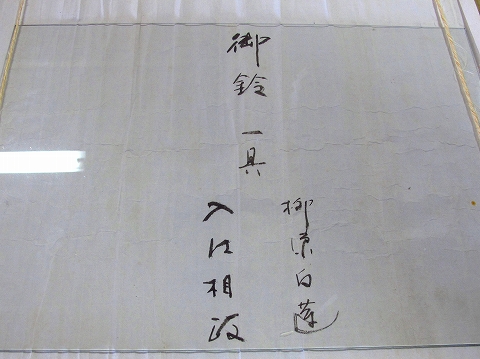 御鈴 一具
柳原白蓮
入江相政